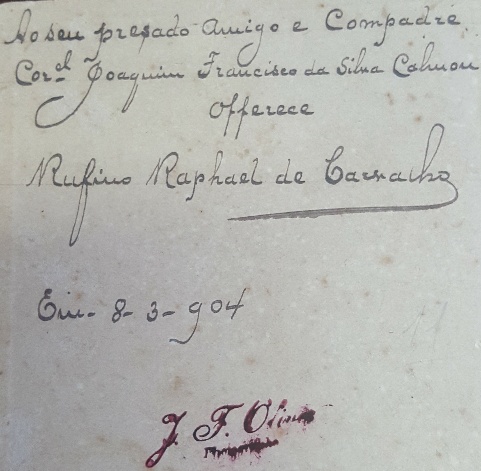 Ao seu presado Amigo e Compadre
Cor.el Joaquim Francisco da Silva Calmon
Offerece
Rufino Raphael de Carvalho
Em- 8-3-904
J. F.